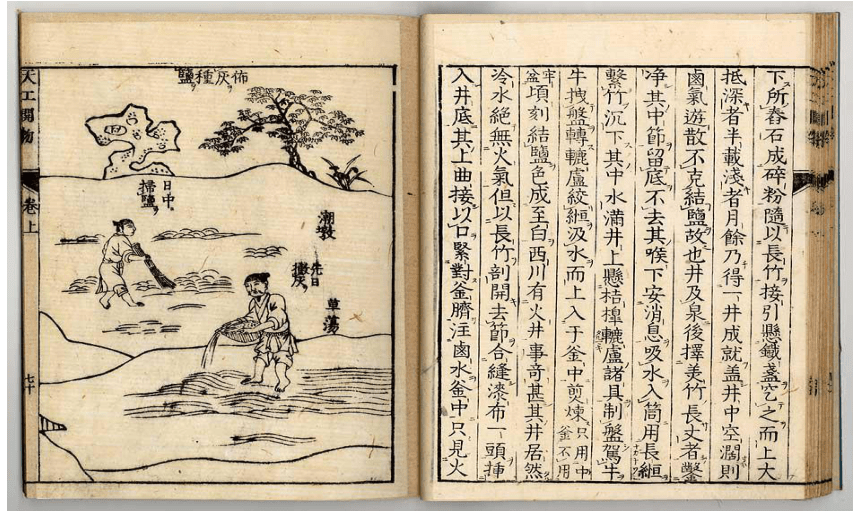 下所舂石成碎粉隨以長竹接引懸鐵盞穵之而上大
抵深者半載淺者月餘乃得一井成就盖井中空濶則
鹵氣遊散不克結鹽故也井及泉後擇美竹長丈者鑿
净其中節留底不去其喉下安消息吸水入筒用長縆
繫竹沉下其中水滿井上懸桔橰轆盧諸具制盤駕牛
牛拽盤轉轆盧絞縆汲水而上入于釜中煎煉只用中釜不用
牢盆頃刻結鹽色成至白西川有火井事奇甚其井居然
冷水絶無火氣但以長竹剖開去節合縫漆布一頭揷
入井底其上曲接以口緊對釜臍注鹵水釜中只見火
佈灰種鹽
潮墩
草蕩
先日撒灰
日中掃鹽
天工開物
卷上
七十